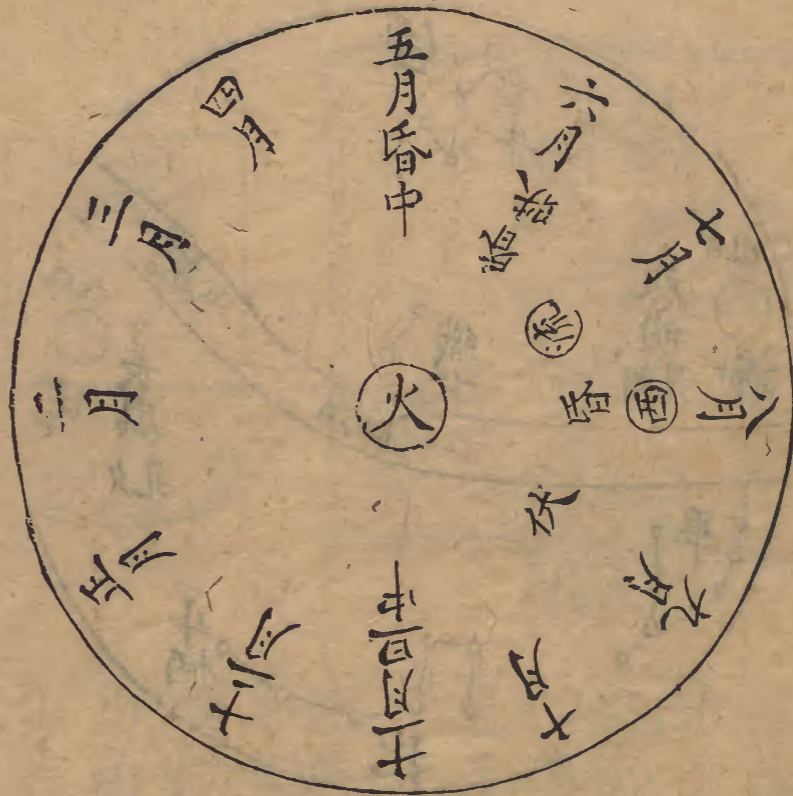 五月昏中
六月昏
七月
流
八月
西
昏
九月
伏
十月
十一月旦中
十二月
正月
二月
三月
四月
火